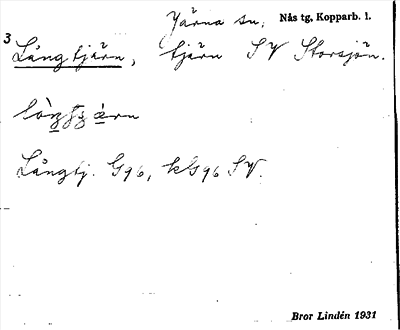 Järna sn, Nås tg, Kopparb. l.
3
Långtjärn, tjärn SV Storsjön.
Långtj. G96, kG96 SV.
Bror Lindén 1931